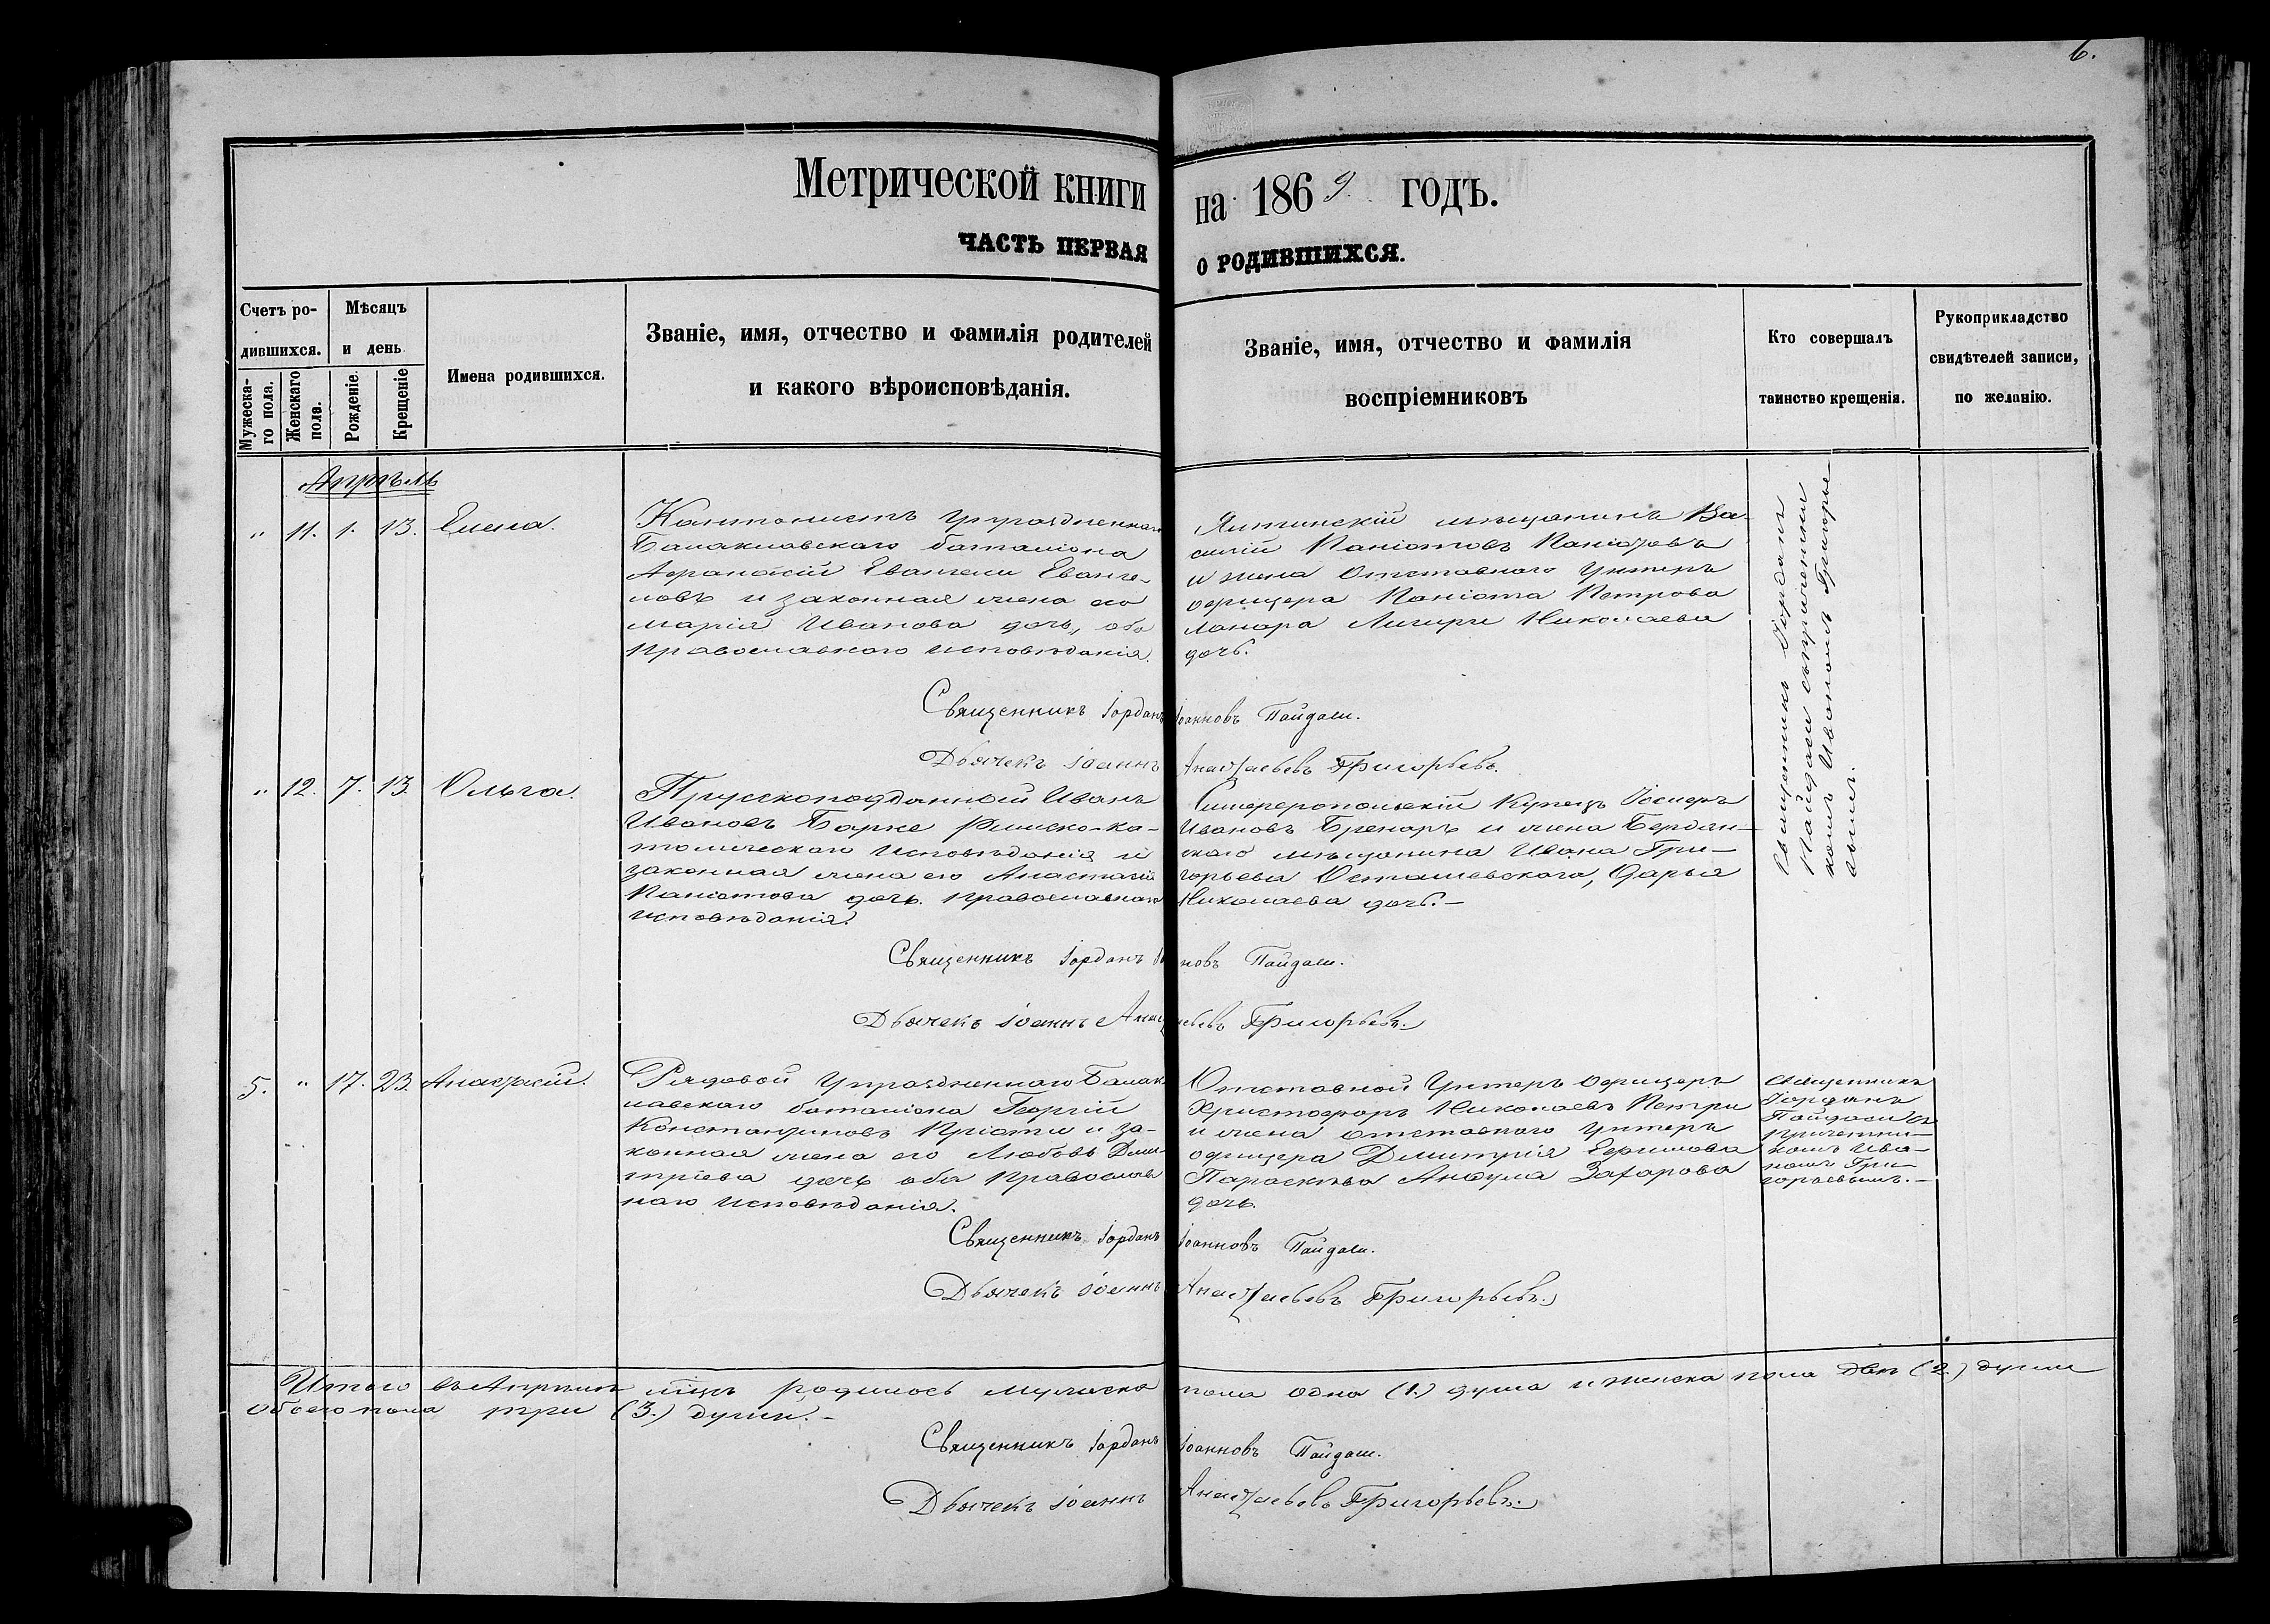 6.
Метрической книги на 1869 годъ.
ЧАСТЬ ПЕРВАЯ О РОДИВШИХСЯ.
Счетъ ро-
дившихся.
Мужеска-
го пола.
Женскаго
пола.
Мѣсяцъ
и день
Рожденіе.
Крещеніе
Имена родившихся.
Званіе, имя, отчество и фамилія родителей
и какого вѣроисповѣданія.
Званіе, имя, отчество и фамилія
воспріемниковъ
Кто совершалъ
таинство крещенія.
Рукоприкладство
свидѣтелей записи,
по желанію.
Апрѣль
" 11. 1. 13. Елена.
Кантонистъ Упраздненнаго
Балаклавскаго баталіона
Афанасій Евангели Еванге-
ловъ и законная жена его
Марія Иванова дочь, оба
Православнаго исповѣданія.
Ялтинскій мѣщанинъ Ва-
силій Паніотовъ Паніотовъ
и жена Отставного Унтеръ
офицера Паніота Петрова
Николаева
дочь.
Священникъ Іорданъ Іоанновъ Пайдаши.
Дьячекъ Іоаннъ Анастасьевъ Григорьевъ.
" 12. 7. 13. Ольга.
Прусскоподданный Иванъ
Ивановъ Барке Римско-ка-
толическаго Исповѣданія и
законная жена его Анастасія
Паніотова дочь Православнаго
исповѣданія.
Симферопольскій Купецъ Іосифъ
Ивановъ и жена Бердян-
скаго мѣщанина Ивана Гри-
горьева Осташевскаго, Дарья
Николаева дочь.-
Священникъ Іорданъ Пайдаши
Каймъ Ивановъ Григорье-
вымъ.
Священникъ Іорданъ новъ Пайдаши.
Дьячекъ Іоаннъ Анастасьевъ Григорьевъ.
5. " 17. 23. Анастасій.
Рядовой Упраздненнаго Балак-
лавскаго баталіона Георгій
Константиновъ и за-
конная жена его Любовь Дми-
тріева дочь оба Православ-
наго исповѣданія.
Отставной Унтеръ офицеръ
Христофоръ Николаевъ Петри
и жена отставного Унтеръ
офицера Димитрія Ефимова
Параскева Захарова
дочь.
Священникъ
Іорданъ
Пайдаши съ
причетни-
комъ Ива-
номъ Гри-
горьевымъ.-
Священникъ Іорданъ Іоанновъ Пайдаши.
Дьячекъ Іоаннъ Анастасьевъ Григорьевъ.
Итого въ Апрѣлѣ мцѣ родилось мужеска пола одна (1.) душа и женска пола двѣ (2.) души
обоего пола три (3.) души.-
Священникъ Іорданъ Іоанновъ Пайдаши.
Дьячекъ Іоаннъ Анастасьевъ Григорьевъ.